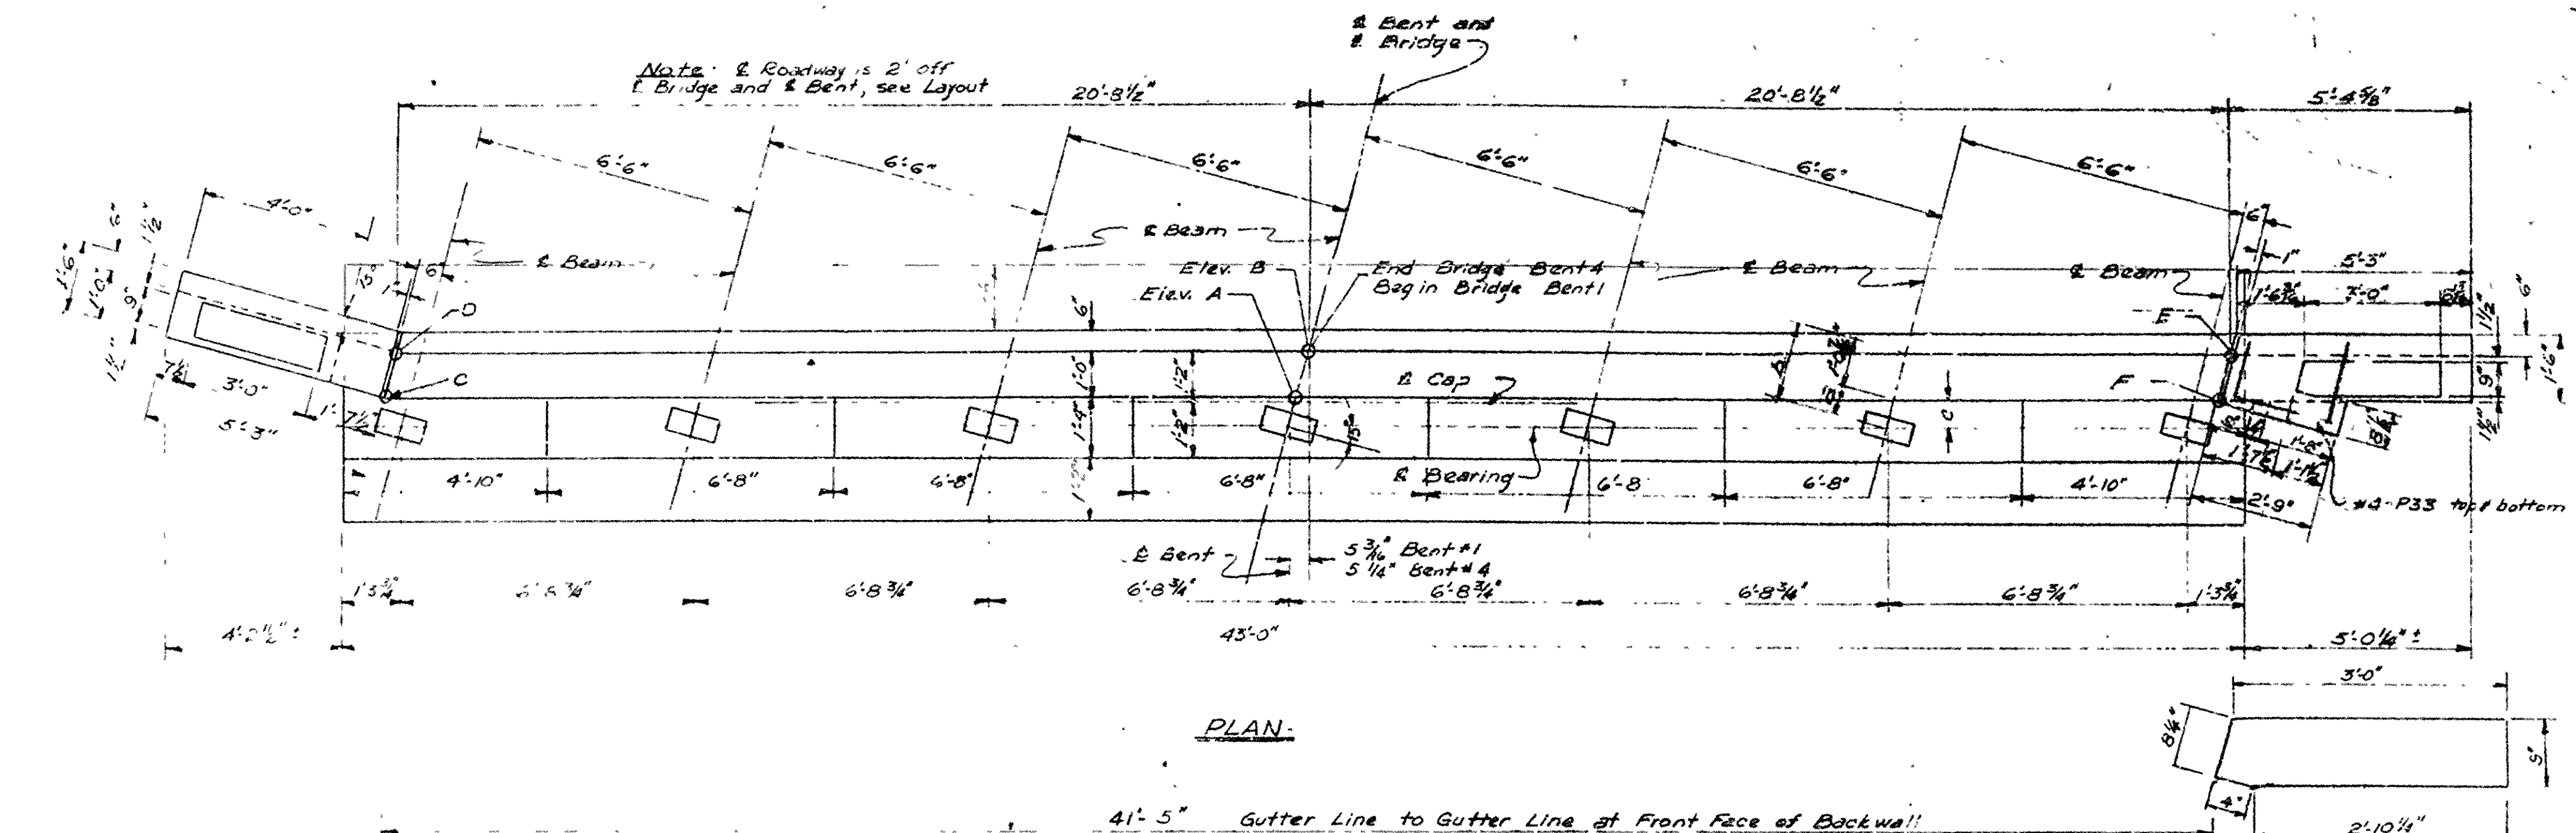 ℄ Bent and
℄ Bridge
Note: ℄ Roadway is 2' off
℄ Bridge and ℄ Bent, see Layout
20'-8½"
20'-8½"
5'-4⅝"
6'-6"
6'-6"
6'-6"
6'-6"
6'-6"
6'-6"
4'-0"
6"
1½"
1'-6"
1'-0"
9"
1½"
℄ Beam
℄ Beam
15°
6"
1"
Elev. B
Elev. A
End Bridge Bent 4
Begin Bridge Bent 1
℄ Beam
℄ Beam
6"
1"
5'-3"
3'-0"
6"
1½"
9"
1½"
1'-6"
D
C
E
F
6"
1'-0"
1'-2"
1'-4"
1'-2"
℄ Cap
15°
C
7½"
3'-0"
5'-3"
1'-7½"
4'-10"
6'-8"
6'-8"
6'-8"
℄ Bearing
6'-8
6'-8"
4'-10"
2'-9"
#4-P33 top & bottom
℄ Bent
5 3/16" Bent #1
5 1/4" Bent #4
1'-3¾"
6'-8¾"
6'-8¾"
6'-8¾"
6'-8¾"
6'-8¾"
6'-8¾"
1'-3¾"
4'-2½" ±
43'-0"
5'-0¼" ±
PLAN
3'-0"
8¼"
9"
4"
2'-10¼"
41'-5" Gutter Line to Gutter Line at Front Face of Backwall